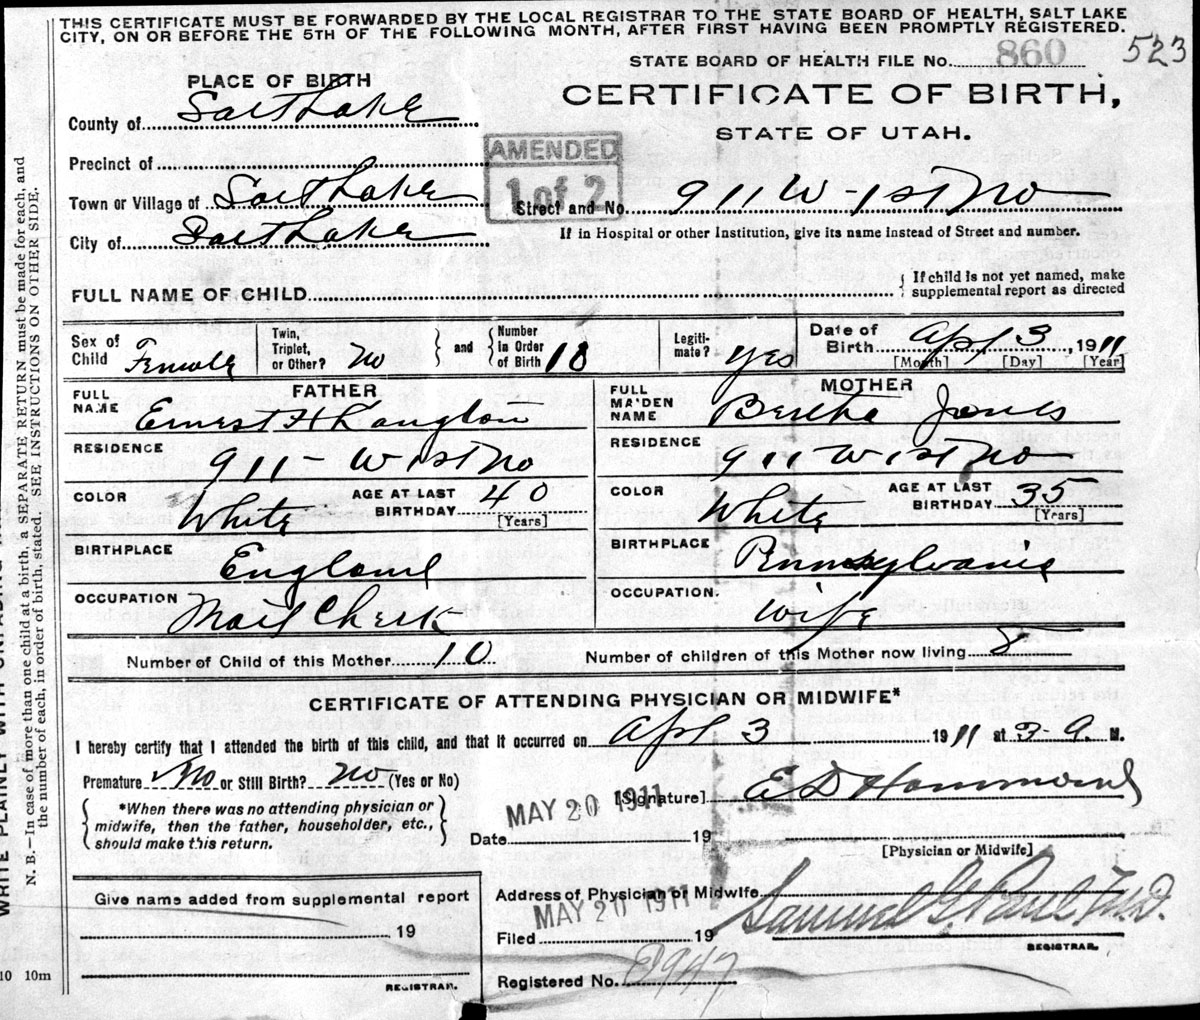 THIS CERTIFICATE MUST BE FORWARDED BY THE LOCAL REGISTRAR TO THE STATE BOARD OF HEALTH, SALT LAKE
CITY, ON OR BEFORE THE 5TH OF THE FOLLOWING MONTH, AFTER FIRST HAVING BEEN PROMPTLY REGISTERED.
523
STATE BOARD OF HEALTH FILE No. 860
PLACE OF BIRTH
CERTIFICATE OF BIRTH,
STATE OF UTAH.
County of Salt Lake
AMENDED
1 of 2
Precinct of
Town or Village of Salt Lake
Street and No. 911 W-1st No
City of Salt Lake
If in Hospital or other Institution, give its name instead of Street and number.
FULL NAME OF CHILD
{ If child is not yet named, make
supplemental report as directed
Sex of Child Female
Twin, Triplet, or Other? No
and
Number in Order of Birth 10
Legiti-mate? yes
Date of Birth Apl 3, 1911
[Month] [Day] [Year]
FATHER
FULL NAME Ernest H Langton
RESIDENCE 911-W 1st No
COLOR White
AGE AT LAST BIRTHDAY 40 [Years]
BIRTHPLACE England
OCCUPATION Mail Clerk
MOTHER
FULL MAIDEN NAME Bertha Jones
RESIDENCE 911-W 1st No
COLOR White
AGE AT LAST BIRTHDAY 35 [Years]
BIRTHPLACE Pennsylvania
OCCUPATION. Wife
Number of Child of this Mother 10
Number of children of this Mother now living 8
CERTIFICATE OF ATTENDING PHYSICIAN OR MIDWIFE*
I hereby certify that I attended the birth of this child, and that it occurred on Apl 3 1911 at 3- A. M.
Premature No or Still Birth? No (Yes or No)
*When there was no attending physician or
midwife, then the father, householder, etc.,
should make this return.
[Signature] E D Hammond
MAY 20 1911
Date 19
[Physician or Midwife]
Give name added from supplemental report
19
REGISTRAR.
Address of Physician or Midwife
MAY 20 1911
Filed 19
Samuel G. Paul M.D.
REGISTRAR.
Registered No.
N. B.—In case of more than one child at a birth, a SEPARATE RETURN must be made for each, and
the number of each, in order of birth, stated. SEE INSTRUCTIONS ON OTHER SIDE.
WRITE PLAINLY WITH UNFADING
10 10m